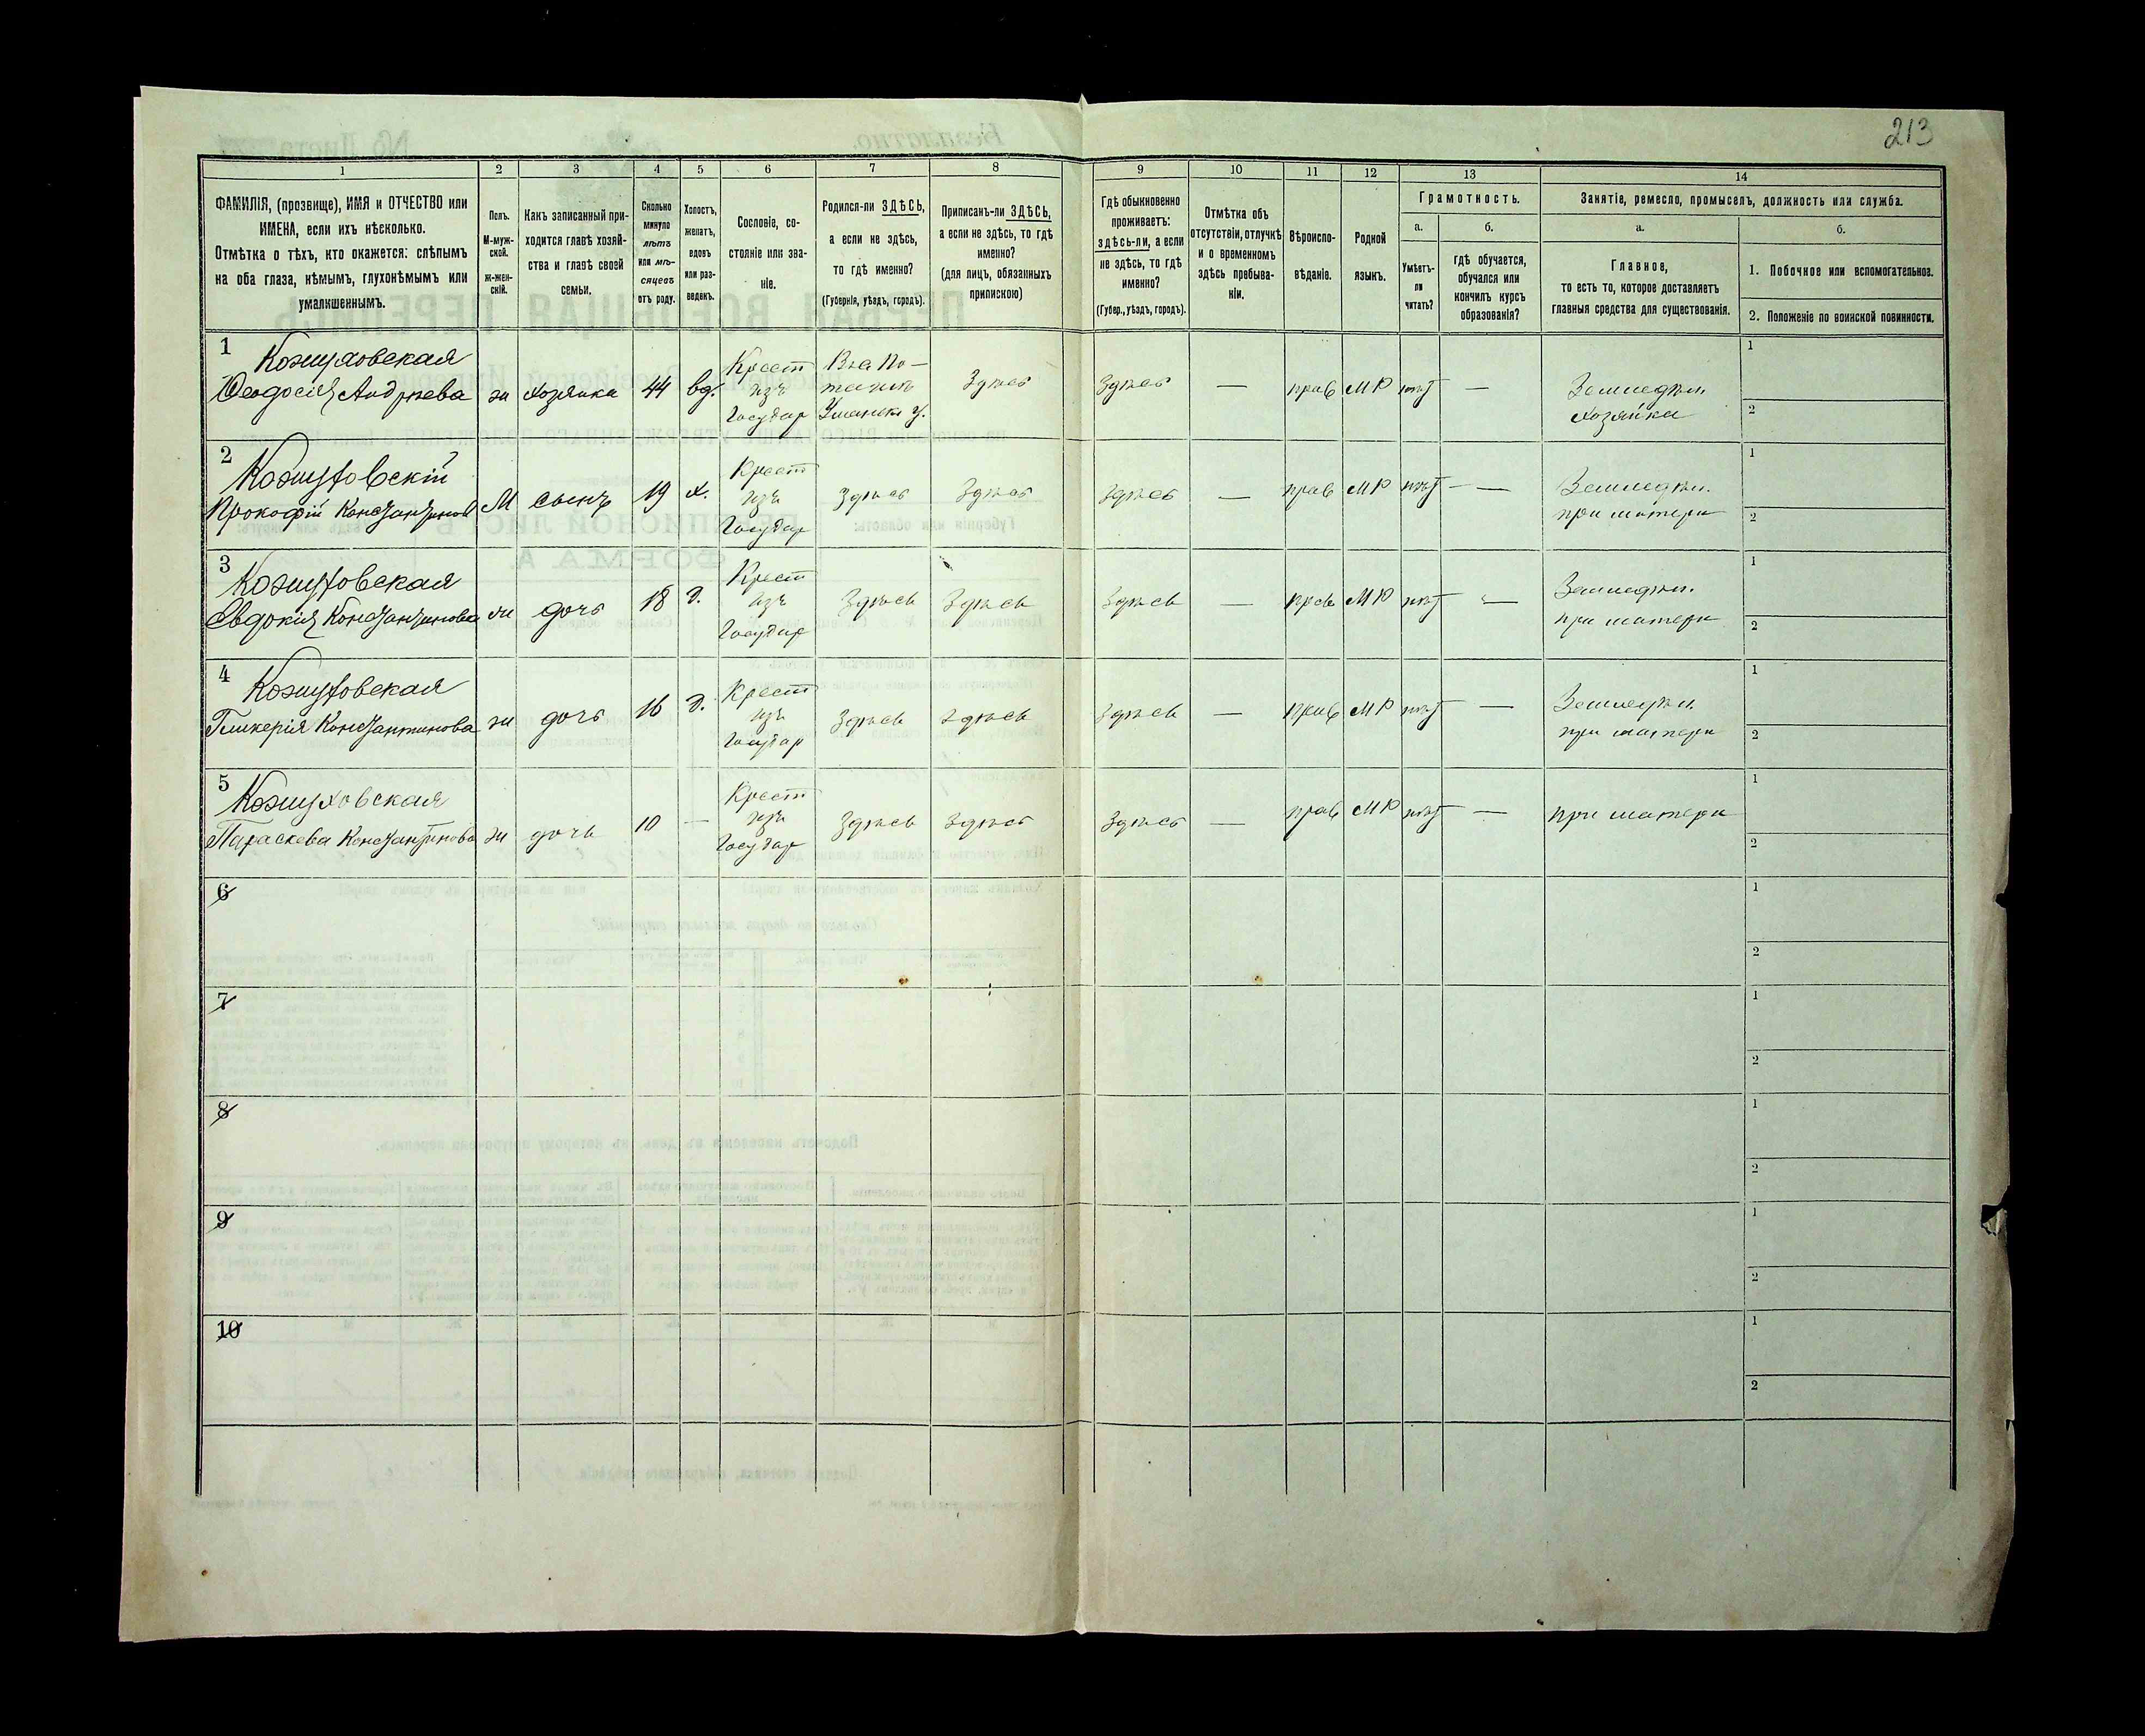 213
1 2 3 4 5 6 7 8 9 10 11 12 13 14
ФАМИЛІЯ, (прозвище), ИМЯ и ОТЧЕСТВО или
ИМЕНА, если ихъ нѣсколько.
Отмѣтка о тѣхъ, кто окажется: слѣпымъ
на оба глаза, нѣмымъ, глухонѣмымъ или
умалишеннымъ.
Полъ.
М-муж-
ской.
ж-жен-
скій.
Какъ записанный при-
ходится главѣ хозяй-
ства и главѣ своей
семьи.
Сколько
минуло
лѣтъ
или мѣ-
сяцевъ
отъ роду.
Холостъ,
женатъ,
вдовъ
или раз-
веденъ.
Сословіе, со-
стояніе или зва-
ніе.
Родился-ли ЗДѢСЬ,
а если не здѣсь,
то гдѣ именно?
(Губернія, уѣздъ, городъ).
Приписанъ-ли ЗДѢСЬ,
а если не здѣсь, то гдѣ
именно?
(для лицъ, обязанныхъ
припискою)
Гдѣ обыкновенно
проживаетъ:
здѣсь-ли, а если
не здѣсь, то гдѣ
именно?
(Губер., уѣздъ, городъ).
Отмѣтка объ
отсутствіи, отлучкѣ
и о временномъ
здѣсь пребыва-
ніи.
Вѣроиспо-
вѣданіе.
Родной
языкъ.
Грамотность.
а.
Умѣетъ-
ли
читать?
б.
гдѣ обучается,
обучался или
кончилъ курсъ
образованія?
Занятіе, ремесло, промыселъ, должность или служба.
а.
Главное,
то есть то, которое доставляетъ
главныя средства для существованія.
б.
1. Побочное или вспомогательное.
2. Положеніе по воинской повинности.
1
Кожуховская
Ѳеодосія Андрѣева
ж
хозяйка
44
вд.
Крест
изъ
Государ
Уманск у.
Здѣсь
Здѣсь
—
прав
МР
нѣт
—
Земледѣл.
хозяйка
1
2
2
Кожуховскій
Прокофій Константинов
М
сынъ
19
х.
Крест
изъ
Государ
Здѣсь
Здѣсь
Здѣсь
—
прав
МР
нѣт
—
Земледѣл.
при матери
1
2
3
Кожуховская
Евдокія Константинова
ж
дочь
18
д.
Крест
изъ
Государ
Здѣсь
Здѣсь
Здѣсь
—
прав
МР
нѣт
—
Земледѣл.
при матери
1
2
4
Кожуховская
Гликерія Константинова
ж
дочь
16
д.
Крест
изъ
Государ
Здѣсь
Здѣсь
Здѣсь
—
прав
МР
нѣт
—
Земледѣл.
при матери
1
2
5
Кожуховская
Параскева Константинова
ж
дочь
10
—
Крест
изъ
Государ
Здѣсь
Здѣсь
Здѣсь
—
прав
МР
нѣт
—
при матери
1
2
6
1
2
7
1
2
8
1
2
9
1
2
10
1
2